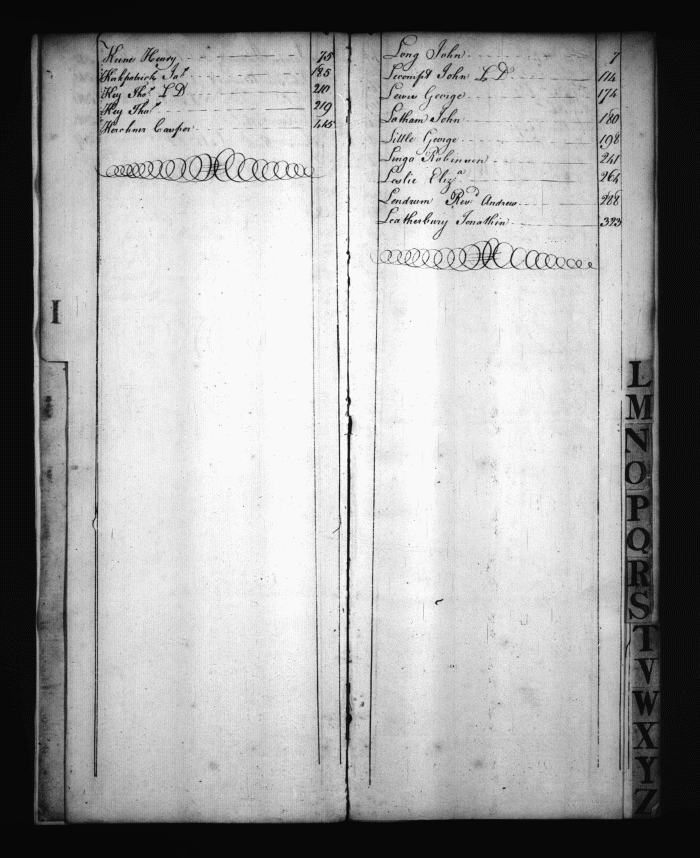 Keene Henry 75
Kirkpatrick Jas 185
Key Thos L D 210
Key Thos 219
Kerchner Casper 445
I
Long John 7
Lecompt John L D 114
Lewis George 174
Latham John 180
Little George 198
Lingo Robinson 241
Leslie Eliza 264
Lendrum Revd Andrew 288
Leatherbury Jonathan 323
L
M
N
O
P
Q
R
S
T
V
W
X
Y
Z